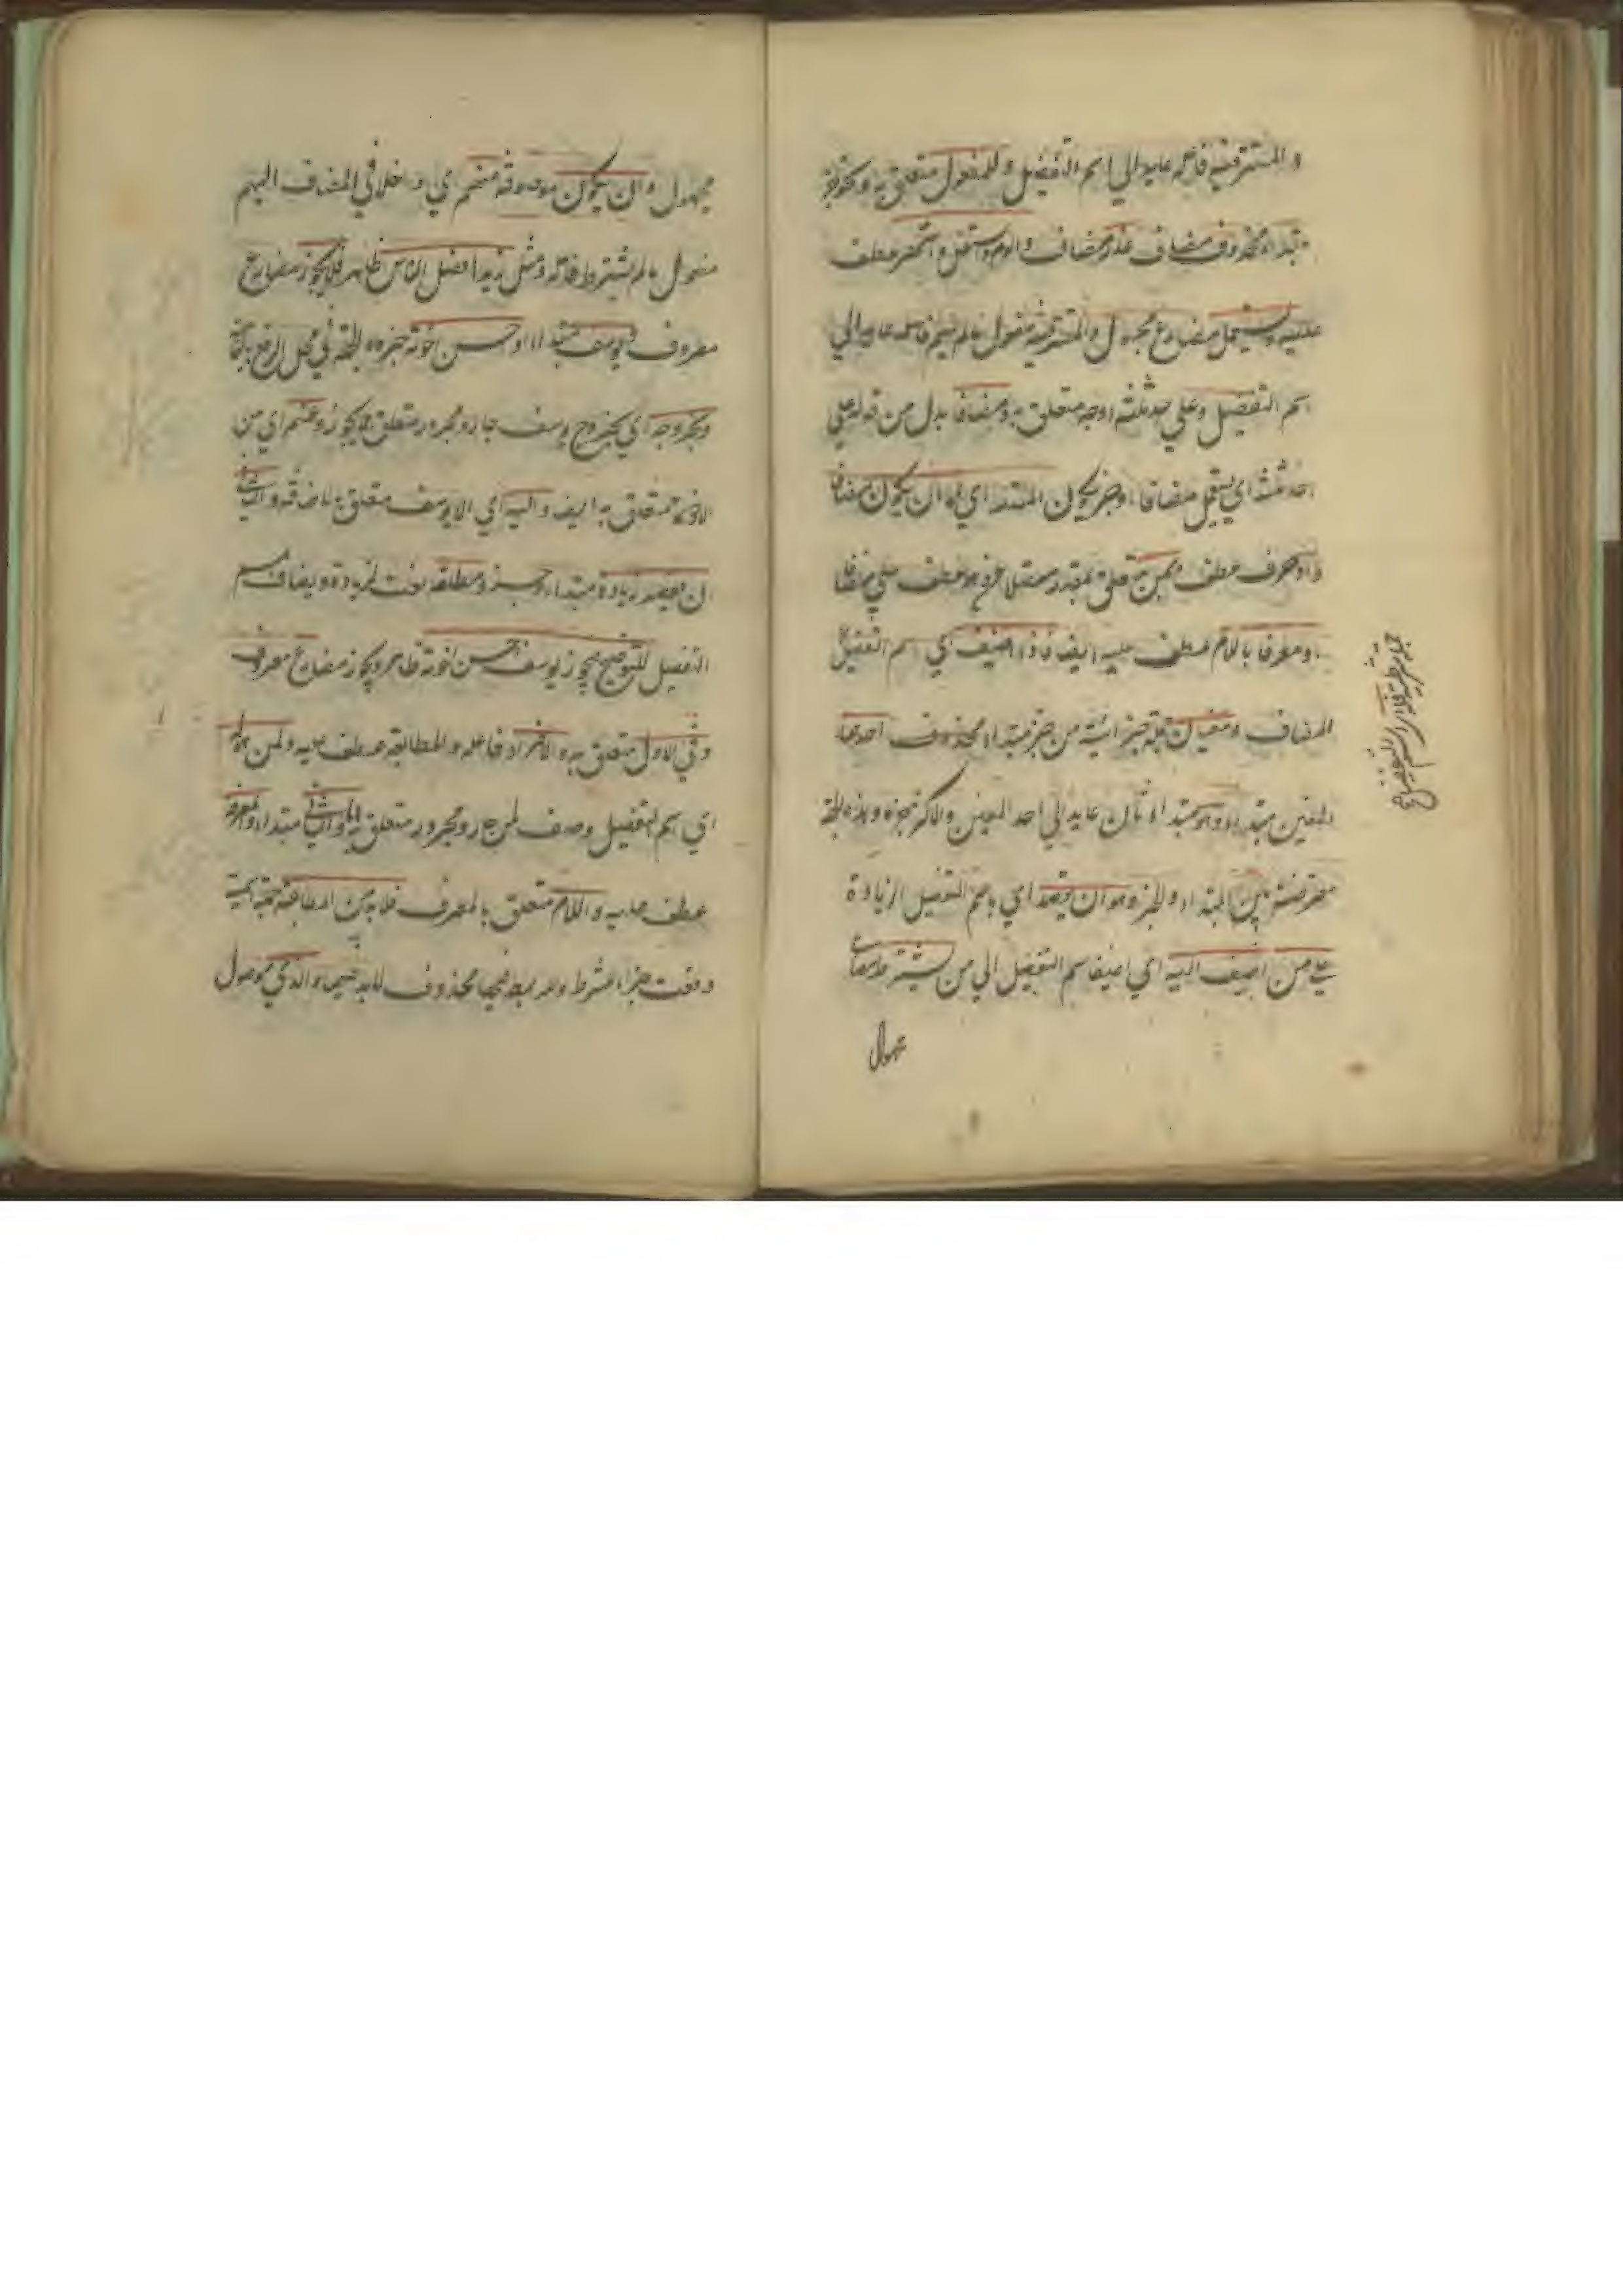 والمستتر فيه فاعله عايد الي اسم التفضيل وللمفعول متعلق به ونحو خبر
مبتداء محذوف مضاف عذر مضاف والوم واشغل واشهر عطف
عليه ويستعمل مضارع مجهول والمستتر فيه مفعول مالم يسم فاعله عايد الي
اسم التفضيل وعلي احد ثلثة اوجه متعلق به ومضافا بدل من قوله علي
احد ثلثة اي يستعمل مضافا او خبر يكون المقدر اي اما ان يكون مضافا
واو حرف عطف وبمن متعلق بمقدر عطف علي مضافا
او معرفا باللام عطف عليه ايضا فاذا اضيف اي اسم التفضيل
المضاف ومعنيان جملة جزائية من خبر مبتداء محذوف احدهما
المعنيين مبتداء وهو مبتداء ثان عايد الي احد المعنيين والاكثر خبره وهذه الجملة
معترضة بين المبتداء والخبر وهو ان يقصد اي باسم التفضيل الزيادة
علي من اضيف اليه اي اضيف اسم التفضيل الي من يشترط مضارع
مجهول
جملة شرطية فله اي لاسم التفضيل
مجهول وان يكون موصوفه منهم اي داخلا في المضاف اليهم
مفعول مالم يشترط فاعله ومثل زيد افضل الناس ظاهر فلا يجوز مضارع
معروف يوسف مبتداء احسن اخوته خبره والجملة في محل الرفع
وبخروجه اي بخروج يوسف جار ومجرور متعلق بلا يجوز وعنهم اي من
الاخوة متعلق به ايضا واليه اي الي يوسف متعلق باضافة والثاني
ان يقصد زيادة مبتداء وخبر ومطلقة نعت لزيادة ويضاف اسم
التفضيل للتوضيح فيجوز يوسف احسن اخوته ظاهر ويجوز مضارع معروف
وفي الاول متعلق به والافراد فاعله والمطابقة عطف عليه ولمن هو له
اي اسم التفضيل وصف لمن جار ومجرور متعلق به واما الثاني مبتداء والمعرف
عطف عليه واللام متعلق بالمعرف فلا بد من المطابقة جملة اسمية
وقعت جزاء لشرط ولا بد فيهما محذوف للا بد فيهما والذي موصول